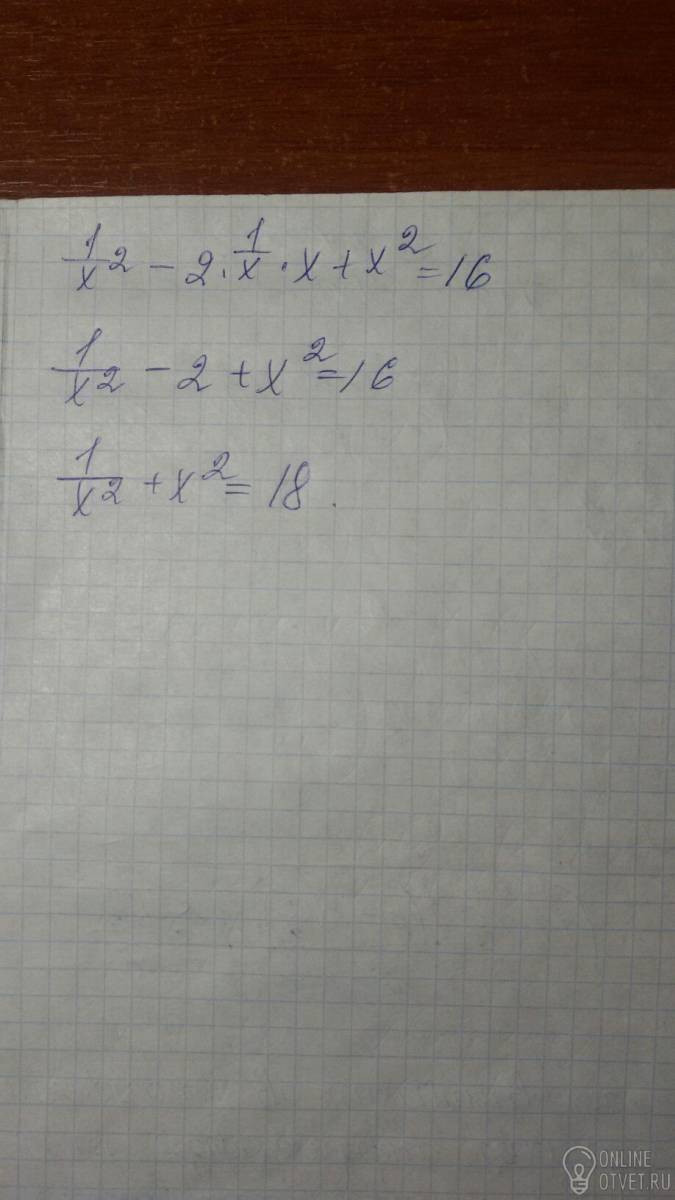 1/x² - 2 · 1/x · x + x² = 16
1/x² - 2 + x² = 16
1/x² + x² = 18.
ONLINE
OTVET.RU